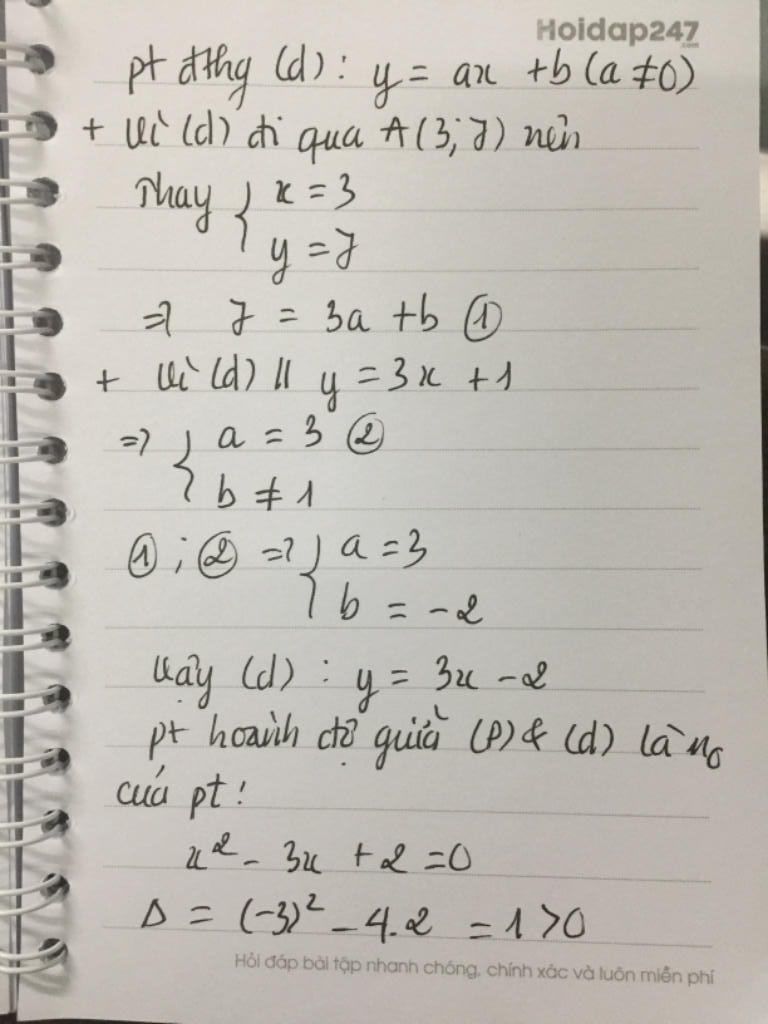 Hoidap247
.com
pt đthg (d) : y = ax + b (a ≠ 0)
+ Vì (d) đi qua A (3; 7) nên
Thay { x = 3
y = 7
=> 7 = 3a + b ①
+ Vì (d) // y = 3x + 1
=> { a = 3 ②
b ≠ 1
① ; ② => { a = 3
b = -2
Vậy (d) : y = 3x - 2
pt hoành độ giữa (P) & (d) là n₀
của pt :
x² - 3x + 2 = 0
Δ = (-3)² - 4.2 = 1 > 0
Hỏi đáp bài tập nhanh chóng, chính xác và luôn miễn phí